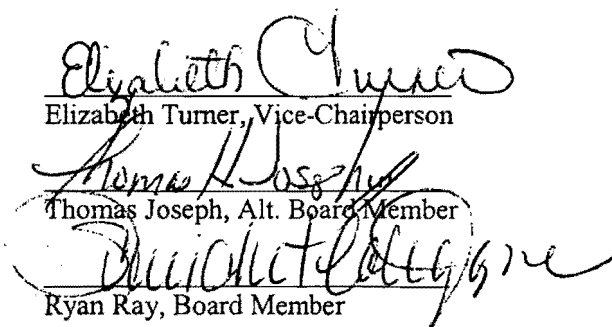 Elizabeth Turner
Elizabeth Turner, Vice-Chairperson
Thomas H Joseph
Thomas Joseph, Alt. Board Member
Ryan Ray, Board Member